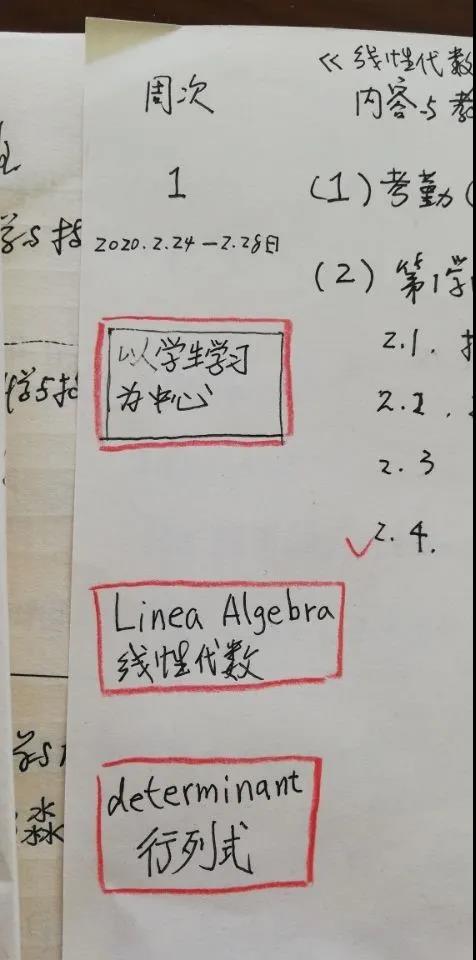 《线性代数
周次
内容与教
1
(1)考勤(
2020.2.24—2.28日
(2)第1学
2.1.
以学生学习
为中心
2.2.
2.3
✓2.4.
Linea Algebra
线性代数
determinant
行列式
学与技
学与技
学与
淼